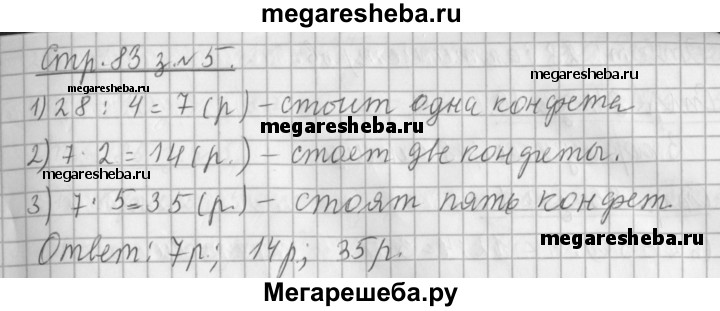 megaresheba.ru
Стр. 83 з. №5.
megaresheba.ru
1) 28 : 4 = 7 (р) – стоит одна конфета
megaresheba.ru
2) 7 · 2 = 14 (р.) – стоет две конфеты.
megaresheba.ru
3) 7 · 5 = 35 (р.) – стоят пять конфет.
megaresheba.ru
Ответ: 7р.; 14р.; 35р.
Мегарешеба.ру